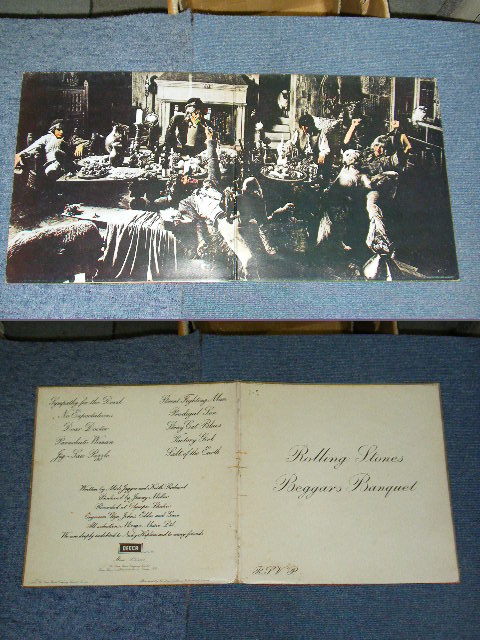 Sympathy for the Devil
No Expectations
Dear Doctor
Parachute Woman
Jig-Saw Puzzle
Street Fighting Man
Prodigal Son
Stray Cat Blues
Factory Girl
Salt of the Earth
Written by Mick Jagger and Keith Richard
Produced by Jimmy Miller
Recorded at Olympic Studios
Engineers Glyn Johns, Eddie and Gene
All selections Mirage Music Ltd.
We are deeply indebted to Nicky Hopkins and to many friends
DECCA
Rolling Stones
Beggars Banquet
R.S.V.P.